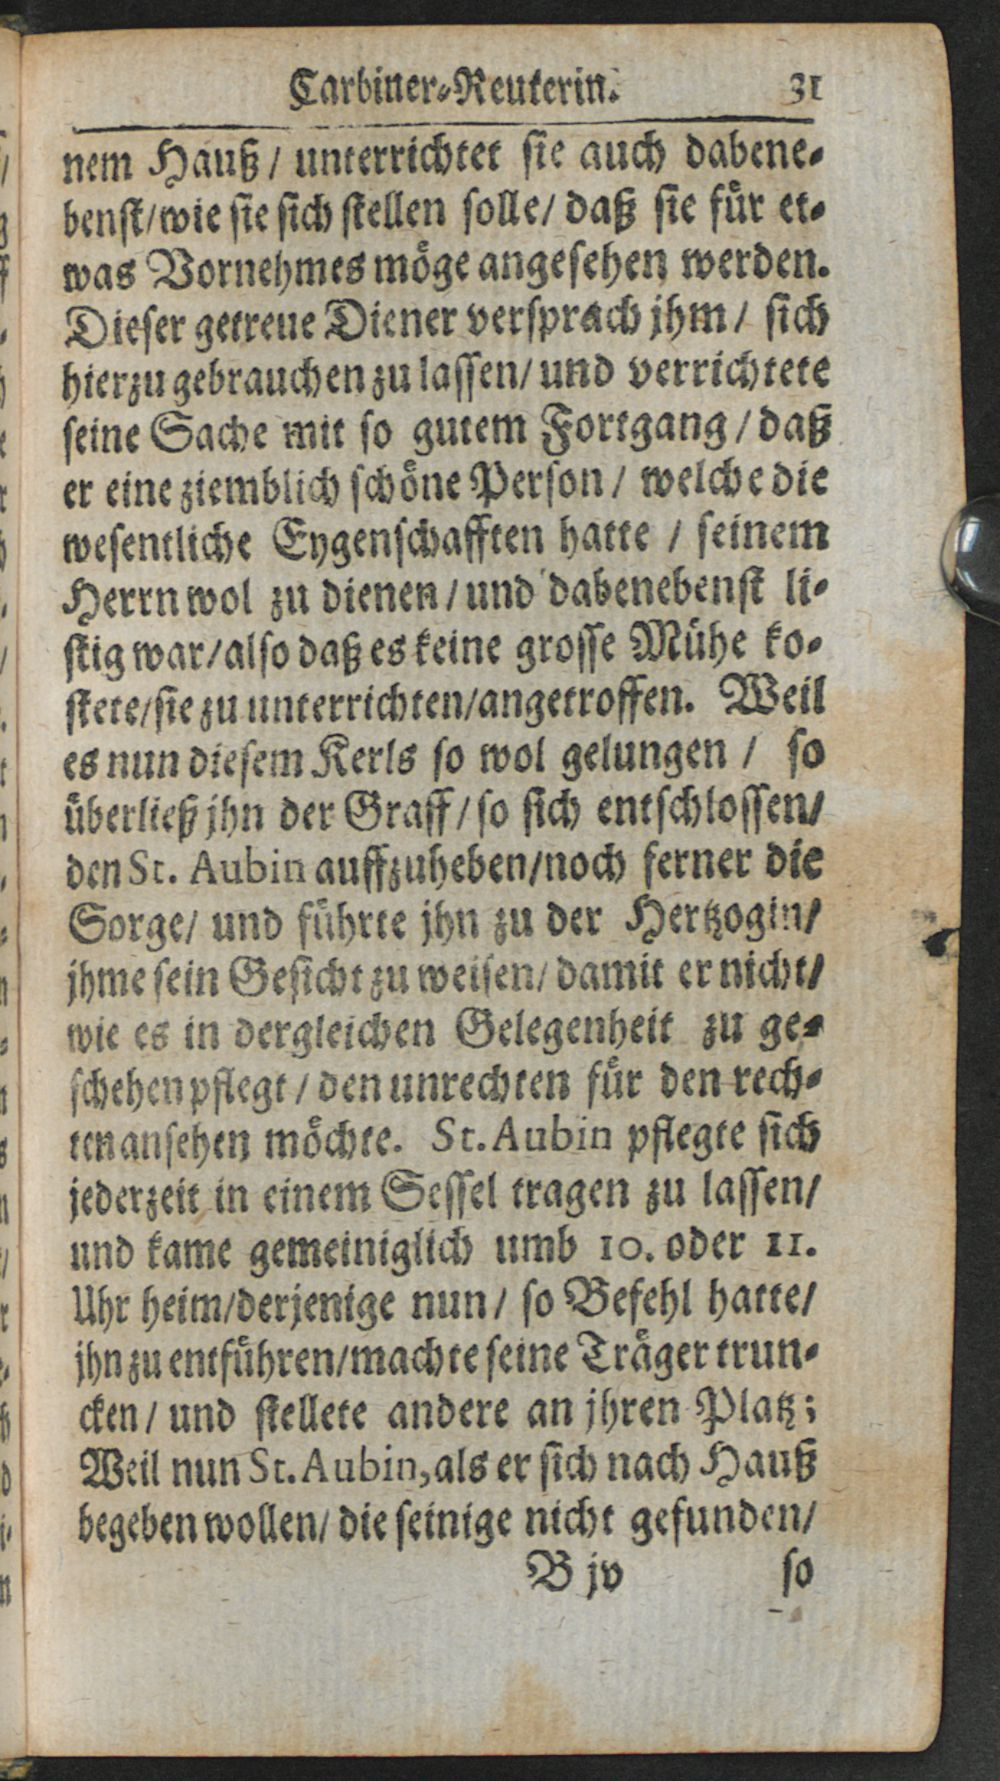 Carbiner-Reuterin. 31
nem Hauß / unterrichtet sie auch dabene-
benst/wie sie sich stellen solle/ daß sie für et-
was Vornehmes möge angesehen werden.
Dieser getreue Diener versprach jhm / sich
hierzu gebrauchen zu lassen/ und verrichtete
seine Sache mit so gutem Fortgang / daß
er eine ziemblich schöne Person / welche die
wesentliche Eygenschafften hatte / seinem
Herrn wol zu dienen / und dabenebenst li-
stig war/also daß es keine grosse Mühe ko-
stete/sie zu unterrichten/angetroffen. Weil
es nun diesem Kerls so wol gelungen / so
überließ jhn der Graff / so sich entschlossen/
den St. Aubin auffzuheben/noch ferner die
Sorge/ und führte jhn zu der Hertzogin/
jhme sein Gesicht zu weisen/ damit er nicht/
wie es in dergleichen Gelegenheit zu ge-
schehen pflegt / den unrechten für den rech-
ten ansehen möchte. St. Aubin pflegte sich
jederzeit in einem Sessel tragen zu lassen/
und kame gemeiniglich umb 10. oder 11.
Uhr heim/derjenige nun / so Befehl hatte/
jhn zu entführen/machte seine Träger trun-
cken / und stellete andere an jhren Platz;
Weil nun St. Aubin, als er sich nach Hauß
begeben wollen/ die seinige nicht gefunden/
B jv so